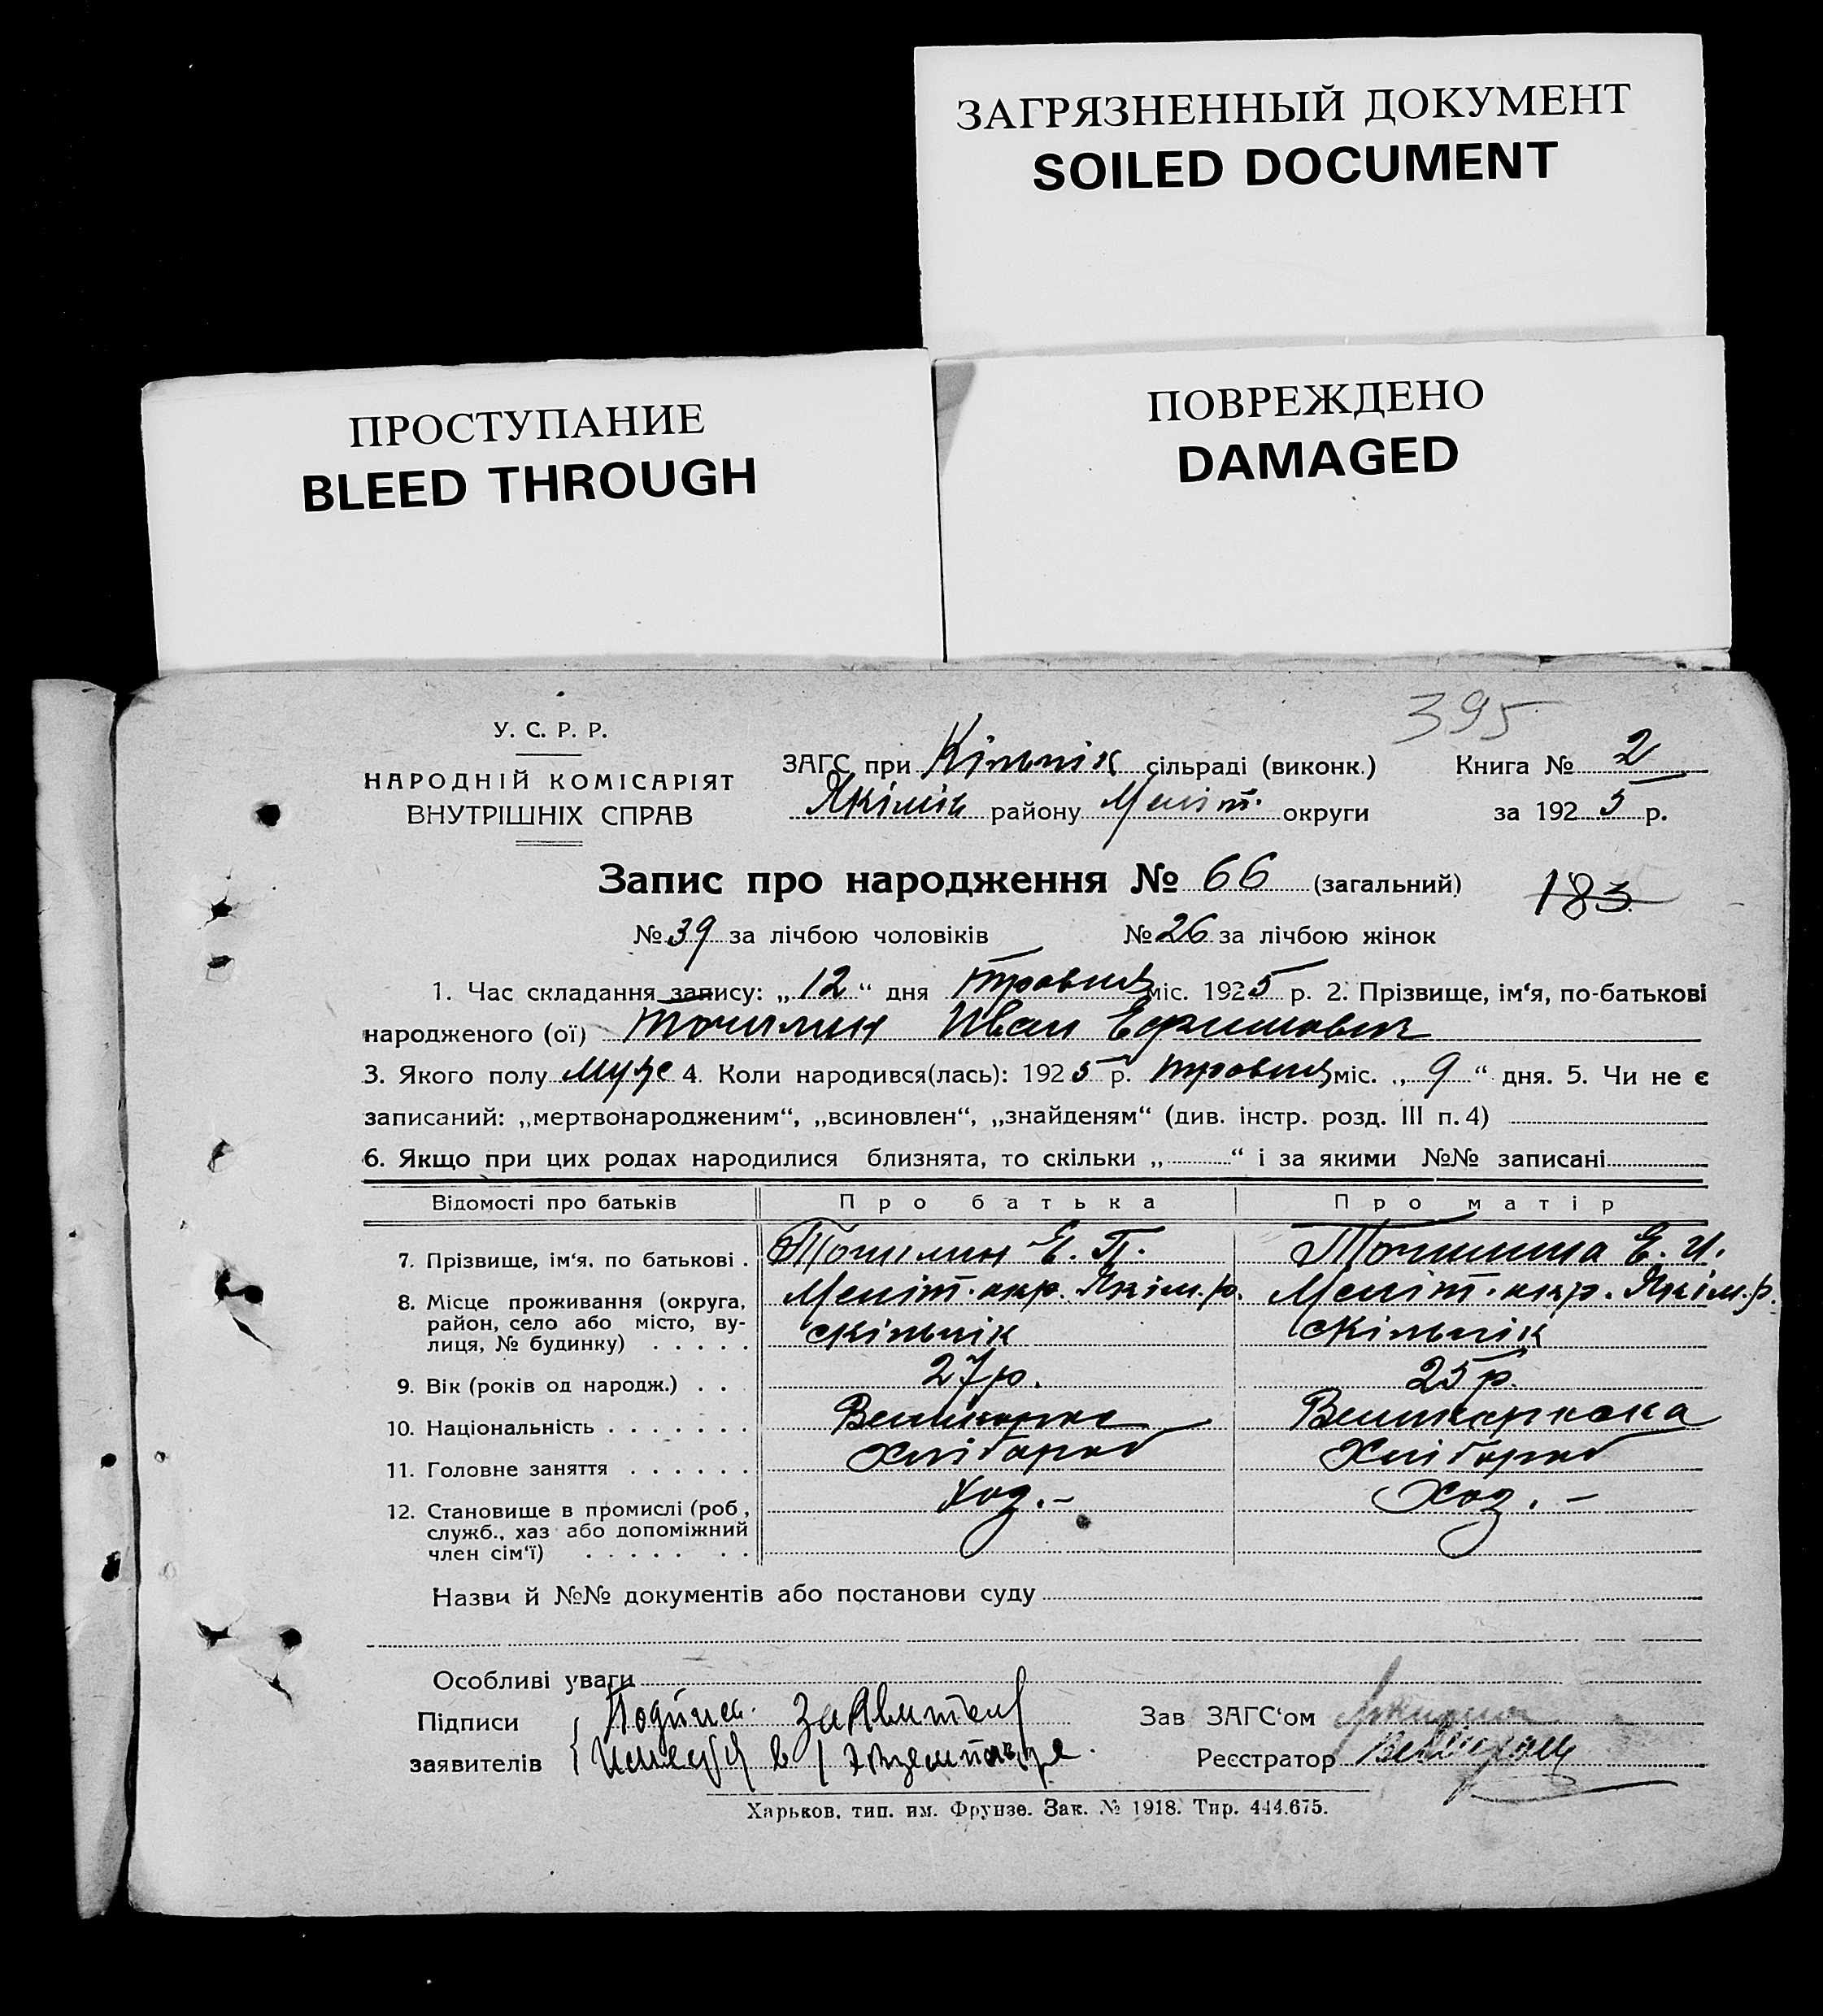 ЗАГРЯЗНЕННЫЙ ДОКУМЕНТ
SOILED DOCUMENT
ПРОСТУПАНИЕ
BLEED THROUGH
ПОВРЕЖДЕНО
DAMAGED
395
У. С. Р. Р.
НАРОДНІЙ КОМІСАРІЯТ
ВНУТРІШНІХ СПРАВ
ЗАГС при Кільшік сільраді (виконк.)
Якімів району Меліт. округи
Книга № 2
за 1925 р.
Запис про народження № 66 (загальний)
183
№ 39 за лічбою чоловіків № 26 за лічбою жінок
1. Час складання запису: „12“ дня травня міс. 1925 р. 2. Прізвище, ім‘я, по-батькові
народженого (ої) Точилин Иван Ефимович
3. Якого полу муж 4. Коли народився(лась): 1925 р. травня міс. „9“ дня. 5. Чи не є
записаний: „мертвонародженим“, „всиновлен“, „знайденям“ (див. інстр. розд. III п. 4)
6. Якщо при цих родах народилися близнята, то скільки „ “ і за якими №№ записані
Відомості про батьків Про батька Про матір
7. Прізвище, ім‘я, по батькові . Точилин Е. П. Точилина Е. И.
8. Місце проживання (округа, Меліт. окр. Якім. р. Меліт. окр. Якім. р.
район, село або місто, ву-
лиця, № будинку) . . . . .
9. Вік (років од народж.) . . 27 р. 25 р.
10. Національність . . . . . . . Великорос Великоруська
11. Головне заняття . . . . . . Хлібороб Хлібороб
12. Становище в промислі (роб, Хоз. – Хоз. –
служб., хаз або допоміжний
член сім‘ї) . . . . . . .
Назви й №№ документів або постанови суду
Особливі уваги
Підписи Подпись Заявителя
заявителів имеется в 1 экземпляре.
Зав ЗАГС‘ом
Реєстратор
Харьков, тип. им. Фрунзе. Зак. № 1918. Тир. 444.675.